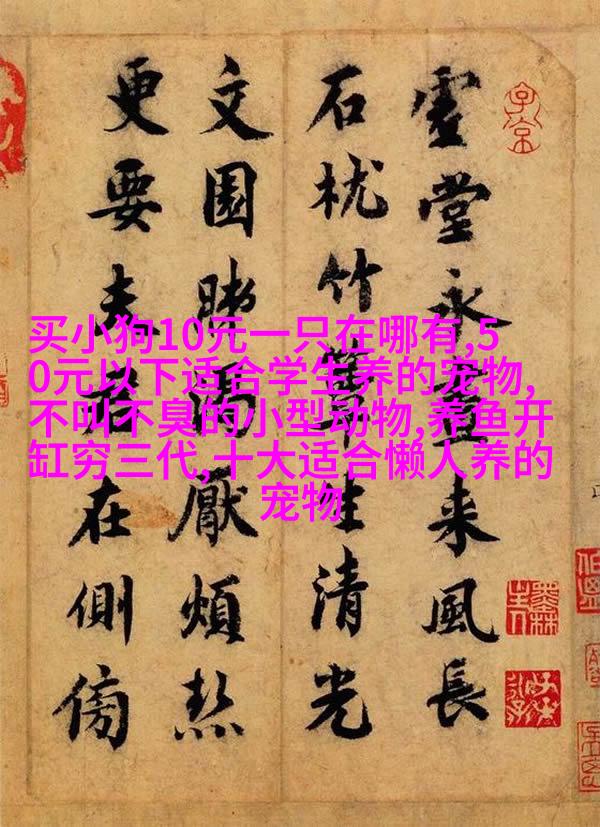 买小狗10元一只在哪有,5
0元以下适合学生养的宠物,
不叫不臭的小型动物,养鱼开
缸穷三代,十大适合懒人养的
宠物
虚堂永昼来風長
石枕竹簟生清光
文園渴厭煩熱
更要君在側傍